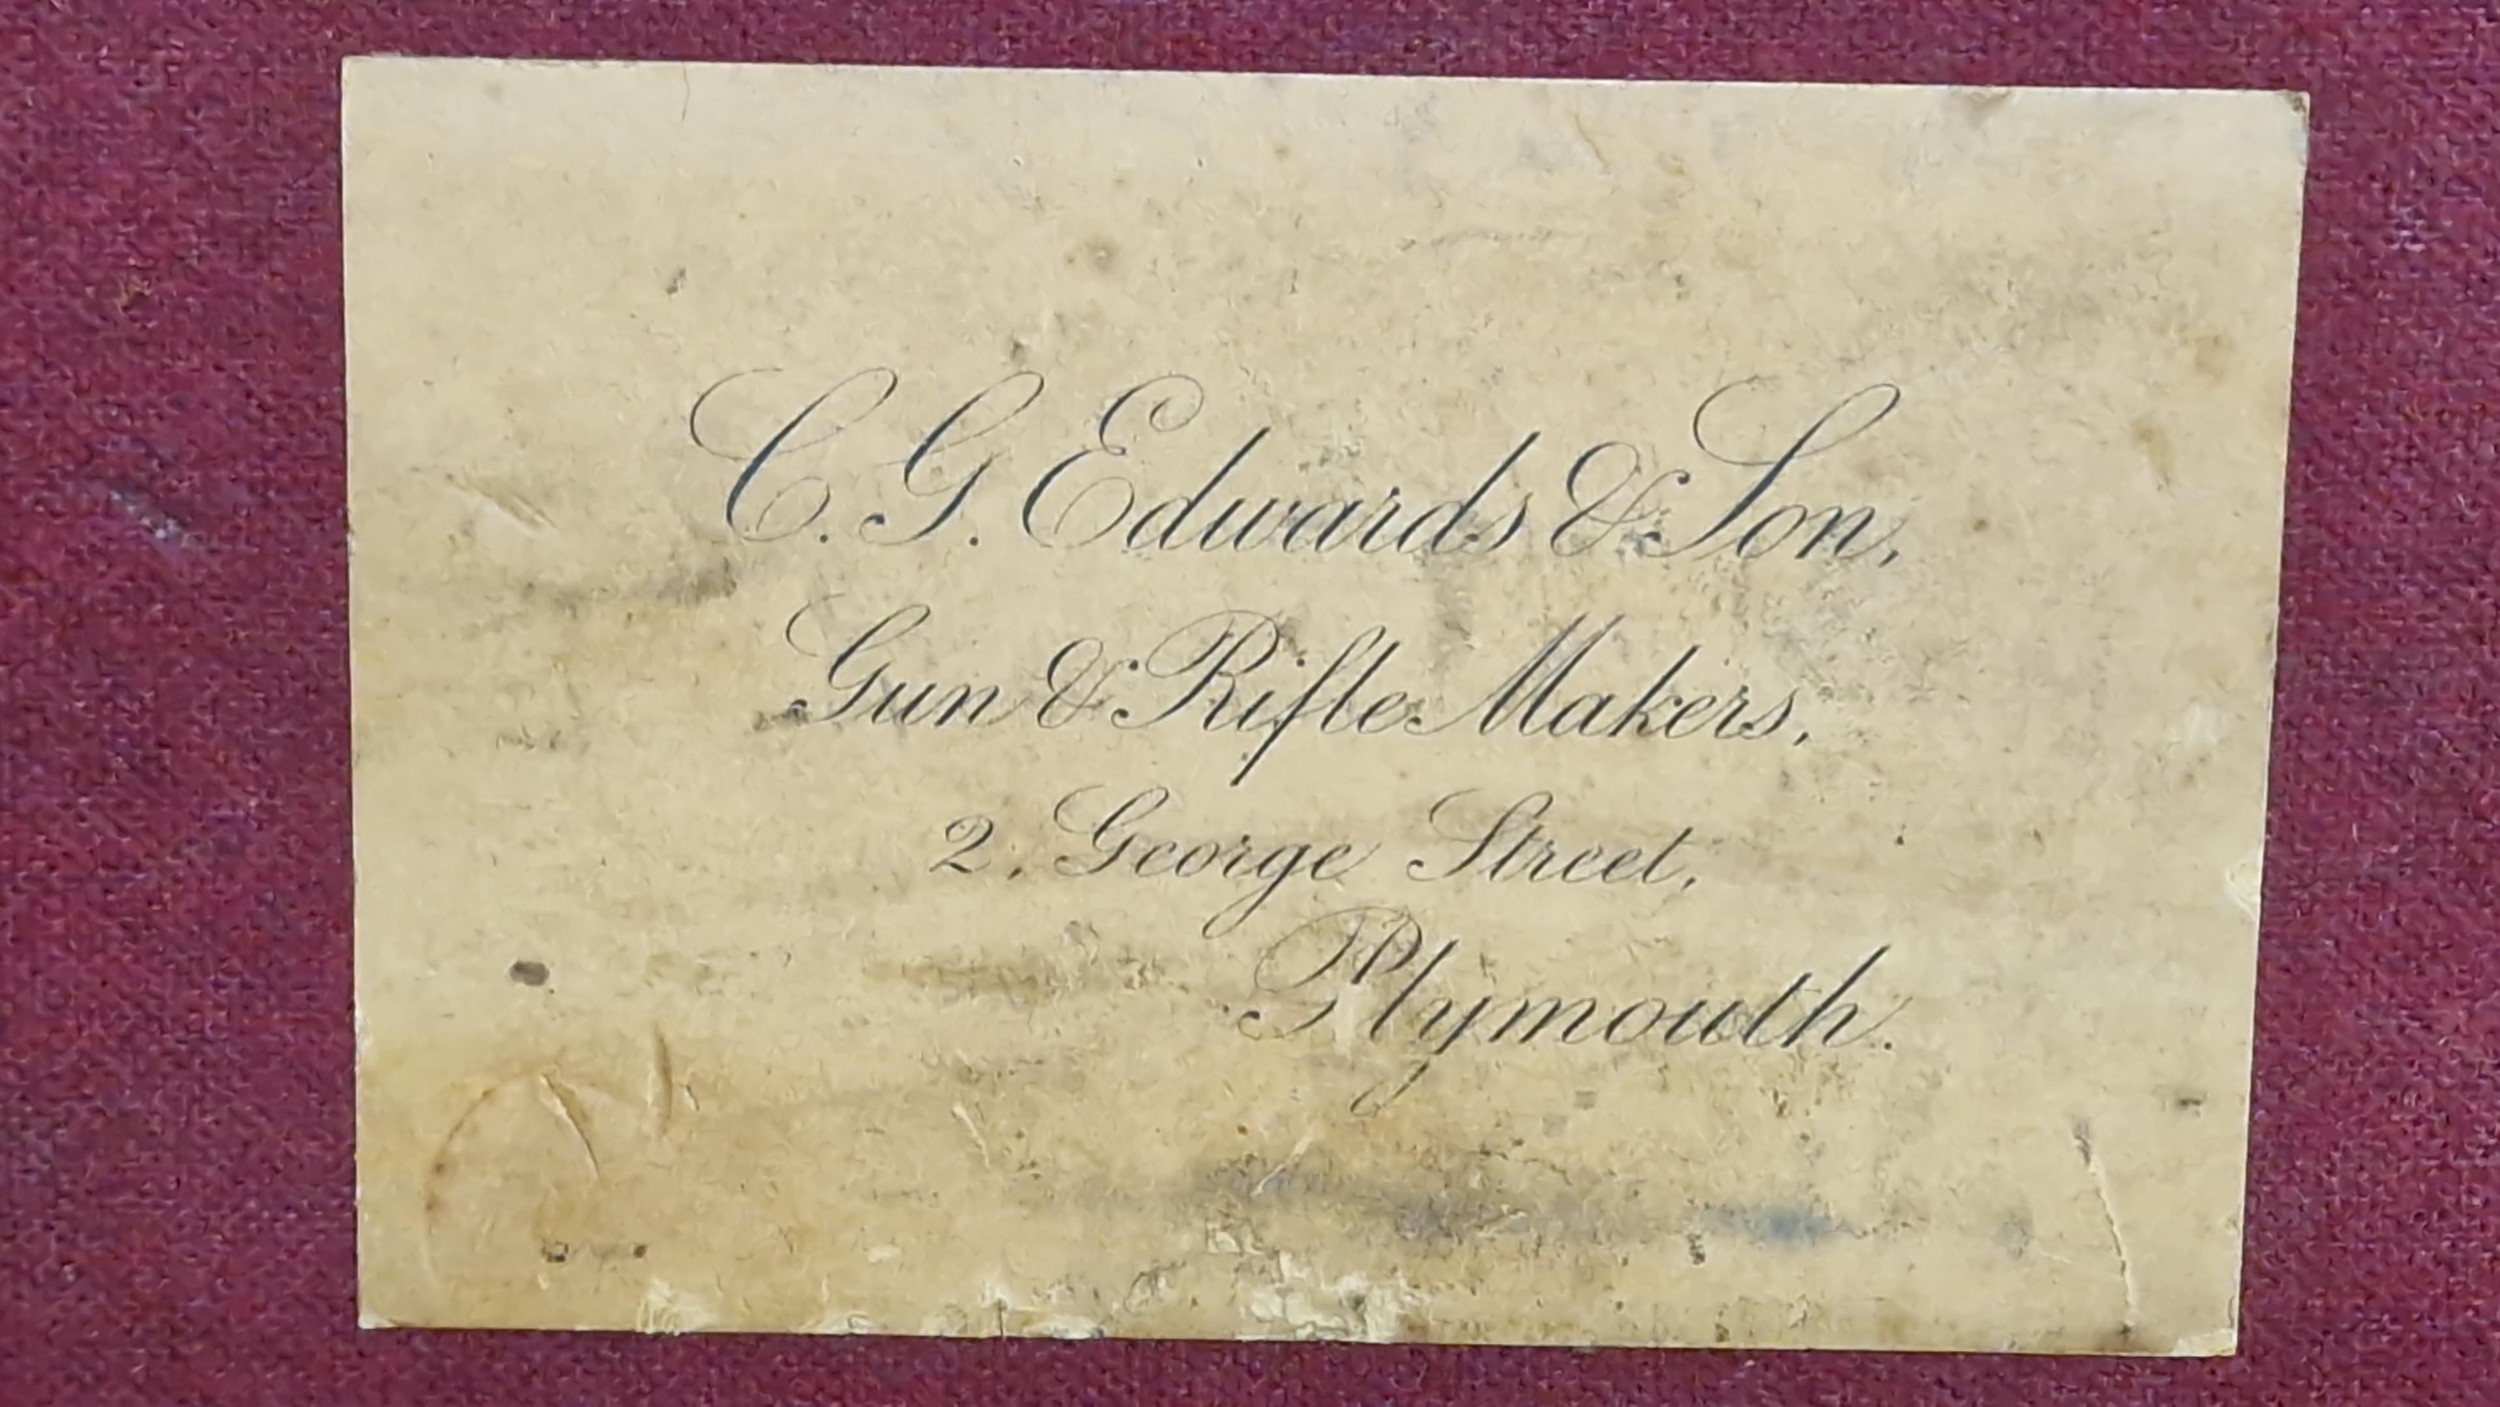 C. G. Edwards & Son,
Gun & Rifle Makers,
2, George Street,
Plymouth.